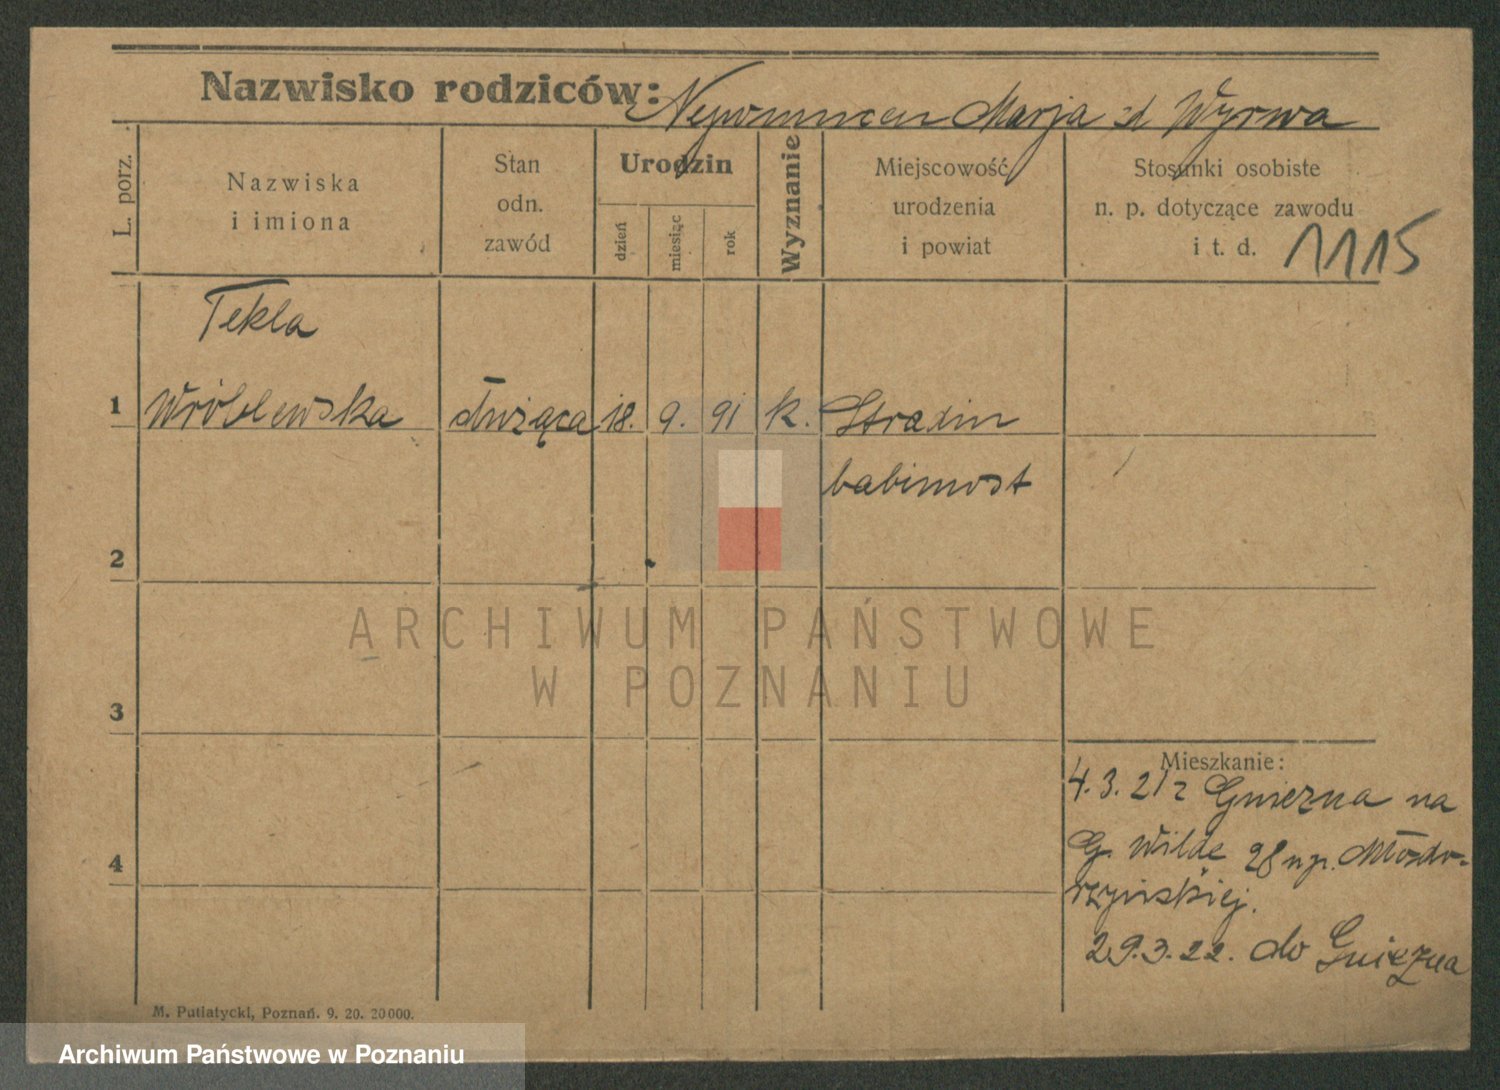 Nazwisko rodziców: Nepomucen Marja zd Wyrwa
L. porz.
Nazwiska
i imiona
Stan
odn.
zawód
Urodzin
dzień
miesiąc
rok
Wyznanie
Miejscowość
urodzenia
i powiat
Stosunki osobiste
n. p. dotyczące zawodu
i t. d.
1115
Tekla
1 Wróblewska służąca 18. 9. 91 k.
babimost
2
3
4
Mieszkanie:
4.3.21 z Gniezna na
G. Wildę 28 u p. Młodo-
29.3.22. do Gniezna
M. Putiatycki, Poznań. 9. 20. 20000.
ARCHIWUM PAŃSTWOWE
W POZNANIU
Archiwum Państwowe w Poznaniu